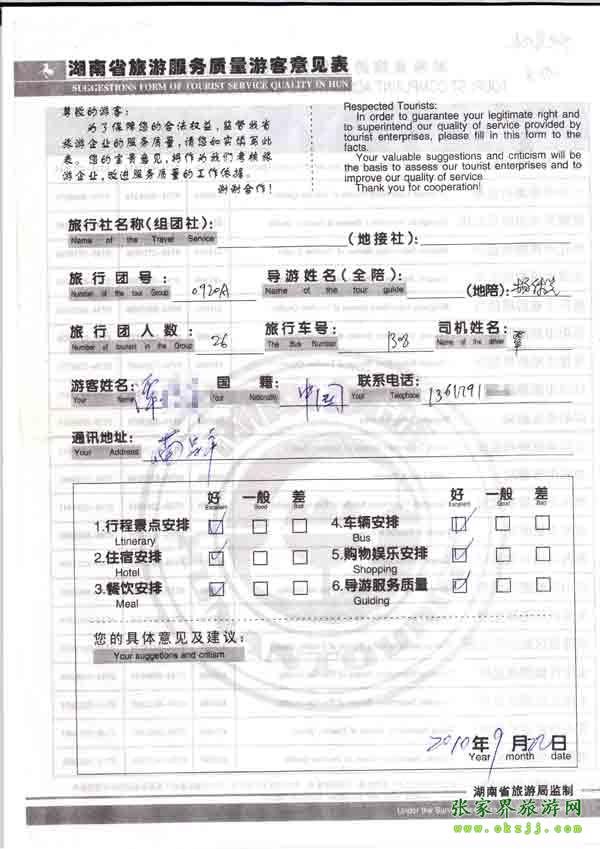 湖南省旅游服务质量游客意见表
SUGGESTIONS FORM OF TOURIST SERVICE QUALITY IN HUN
尊敬的游客:
为了保障您的合法权益,监督我省
旅游企业的服务质量,请您如实填写此
表。您的宝贵意见,将作为我们考核旅
游企业,改进服务质量的工作依据。
谢谢合作!
Respected Tourists:
In order to guarantee your legitimate right and
to superintend our quality of service provided by
tourist enterprises, please fill in this form to the
facts.
Your valuable suggestions and criticism will be
the basis to assess our tourist enterprises and to
improve our quality of service.
Thank you for cooperation!
旅行社名称(组团社): (地接社):
Name of the Travel Service
旅行团号: 0920A 导游姓名(全陪): (地陪):
Number of the tour Group Name of the tour guide
旅行团人数: 26 旅行车号: 1308 司机姓名:
Number of tourist in the Group The Bus Number Name of the driver
游客姓名: 覃 国籍: 中国 联系电话: 1361791
Your Name Your Nationality Your Telephone
通讯地址:
Your Address
好 一般 差 好 一般 差
Excellent Good Bad Excellent Good Bad
1.行程景点安排 4.车辆安排
Ltinerary Bus
2.住宿安排 5.购物娱乐安排
Hotel Shopping
3.餐饮安排 6.导游服务质量
Meal Guiding
您的具体意见及建议:
Your suggetions and critism
2010年9月22日
Year month date
湖南省旅游局监制
Under the
张家界旅游网
www.okzjj.com